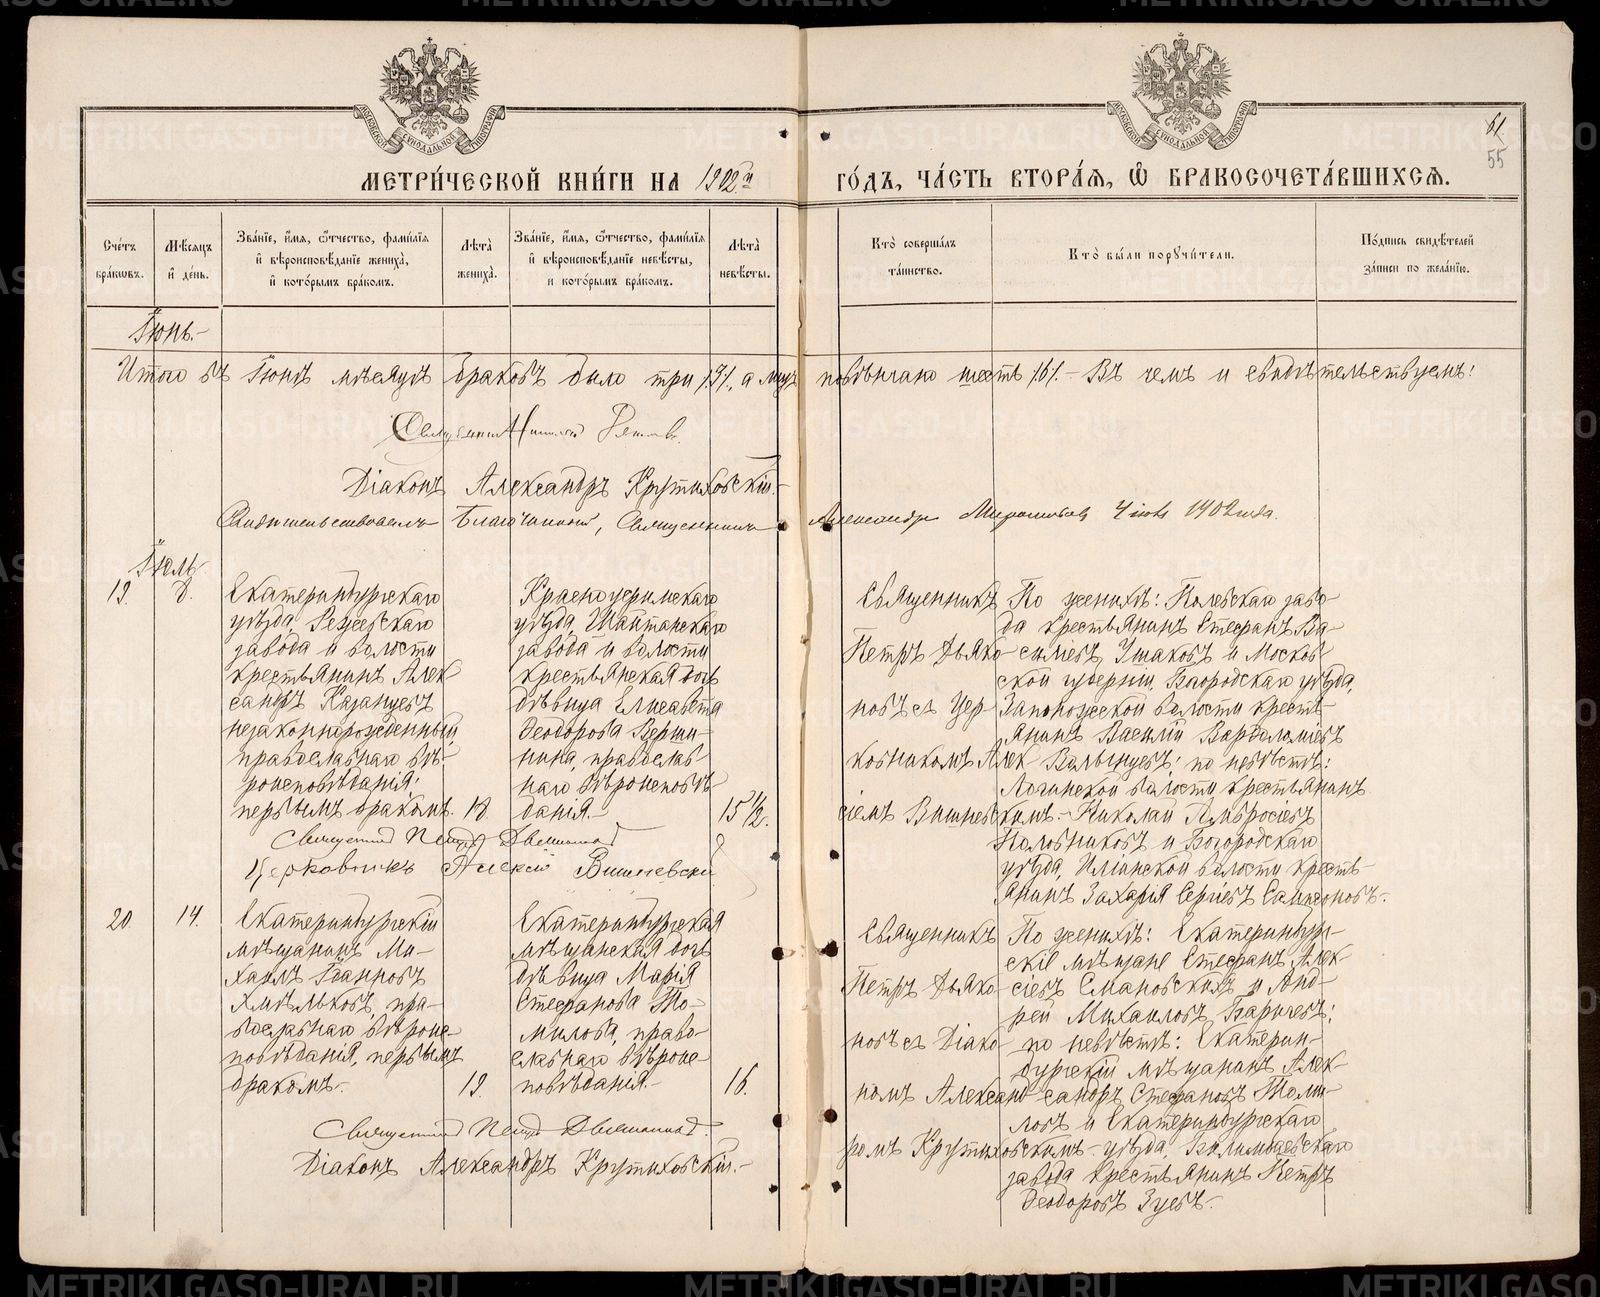 МЕТРИ́ЧЕСКОЙ КНИ́ГИ НА 1902й ГО́ДЪ, ЧА́СТЬ ВТОРА́Я, Ѽ БРАКОСОЧЕТА́ВШИХСЯ.
61
55
Счетъ браковъ.
Мѣсяцъ и день.
Званіе, имя, отчество, фамилія и вѣроисповѣданіе жениха, и которымъ бракомъ.
Лѣта жениха.
Званіе, имя, отчество, фамилія и вѣроисповѣданіе невѣсты, и которымъ бракомъ.
Лѣта невѣсты.
Кто совершалъ таинство.
Кто были поручители.
Подпись свидѣтелей записи по желанію.
Іюнь.-
Итого въ Іюнѣ мѣсяцѣ браковъ было три /3/, а лицъ повѣнчано шесть /6/.- Въ чемъ и свидѣтельствуемъ:
Священникъ
Діаконъ Александръ Крутиховскій.-
Благочинный, Священникъ Александръ 4 1902 года.
Іюль.
19.
8.
Екатеринбургскаго
уѣзда, Режевскаго
завода и волости
крестьянинъ Алек-
сандръ Казанцевъ
незаконнорожденный
православнаго вѣ-
роисповѣданія;
первымъ бракомъ.
18.
Красноуфимскаго
уѣзда, Шайтанскаго
завода и волости
крестьянская дочь
дѣвица Елисавета
Ѳеодорова Верши-
нина, православ-
наго вѣроисповѣ-
данія.-
15 1/2.
Священникъ
Петръ Дьяко-
новъ съ Цер-
ковникомъ Алек-
сіемъ Вишневскимъ.-
По женихѣ: Полевскаго заво-
да крестьянинъ Стефанъ Ва-
сильевъ Ушаковъ и Москов-
ской губерніи, Богородскаго уѣзда,
Запонорской волости кресть-
янинъ Василій Варѳоломеевъ
Волынцевъ; по невѣстѣ:
Логинской волости крестьянинъ
Николай Амвросіевъ
Половниковъ и Богородскаго
уѣзда, Ильинской волости кресть-
янинъ Захарія Сергіевъ Самсоновъ.-
Священникъ Петръ
Церковникъ Алексій Вишневскій
20.
14.
Екатеринбургскій
мѣщанинъ Ми-
хаилъ Іоанновъ
Хмѣльковъ, пра-
вославнаго вѣроис-
повѣданія, первымъ
бракомъ.-
19.
Екатеринбургская
мѣщанская дочь
дѣвица Марія
Стефанова То-
милова, право-
славнаго вѣроис-
повѣданія.-
16.
Священникъ
Петръ Дьяко-
новъ съ Діако-
номъ Александ-
ромъ Крутиховскимъ.-
По женихѣ: Екатеринбург-
скіе мѣщане Стефанъ Алек-
сіевъ Смановскихъ и Анд-
рей Михаиловъ Барычевъ;
по невѣстѣ: Екатерин-
бургскій мѣщанинъ Алек-
сандръ Стефановъ Томи-
ловъ и Екатеринбургскаго
уѣзда, Билимбаевскаго
завода крестьянинъ Петръ
Ѳеодоровъ Зуевъ.-
Священникъ Петръ
Діаконъ Александръ Крутиховскій.-
METRIKI.GASO-URAL.RU